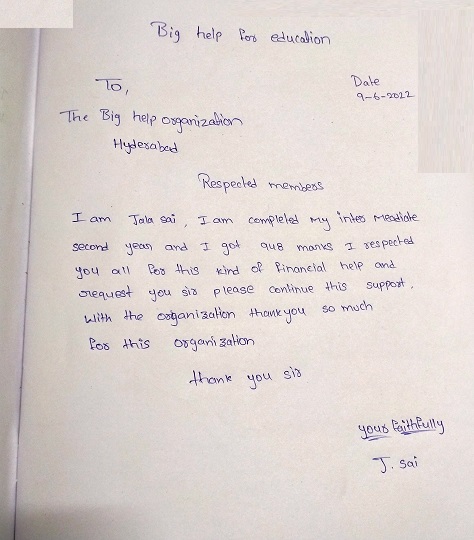 Big help for education
To,
Date
9-6-2022
The Big help organization
Hyderabad
Respected members
I am Jala sai, I am completed my inter meadiate
second year, and I got 948 marks I respected
you all for this kind of financial help and
request you sir please continue this support.
with the organization thankyou so much
for this organization
thank you sir
your faithfully
J. sai